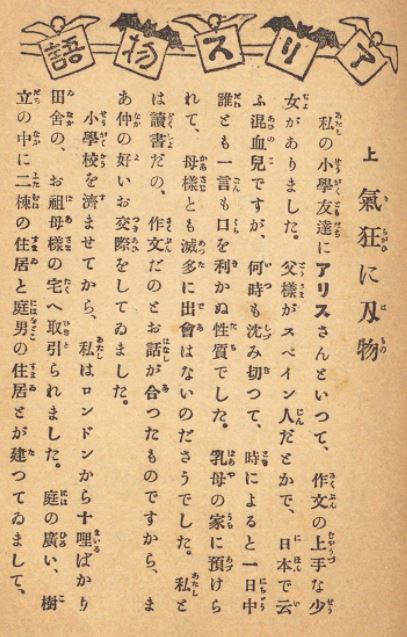 アリス物語
上 氣狂に刄物
私の小學友達にアリスさんといつて、作文の上手な少
女がありました。父樣がスペイン人だとかで、日本で云
ふ混血兒ですが、何時も沈み切つて、時によると一日中
誰とも一言も口を利かぬ性質でした。乳母の家に預けら
れて、母樣とも滅多に出會はないのださうでした。私と
は讀書だの、作文だのとお話が合つたものですから、ま
あ仲の好いお交際をしてゐました。
小學校を濟ませてから、私はロンドンから十哩ばかり
田舍の、お祖母樣の宅へ取引られました。庭の廣い、樹
立の中に二棟の住居と庭男の住居とが建つてゐまして、